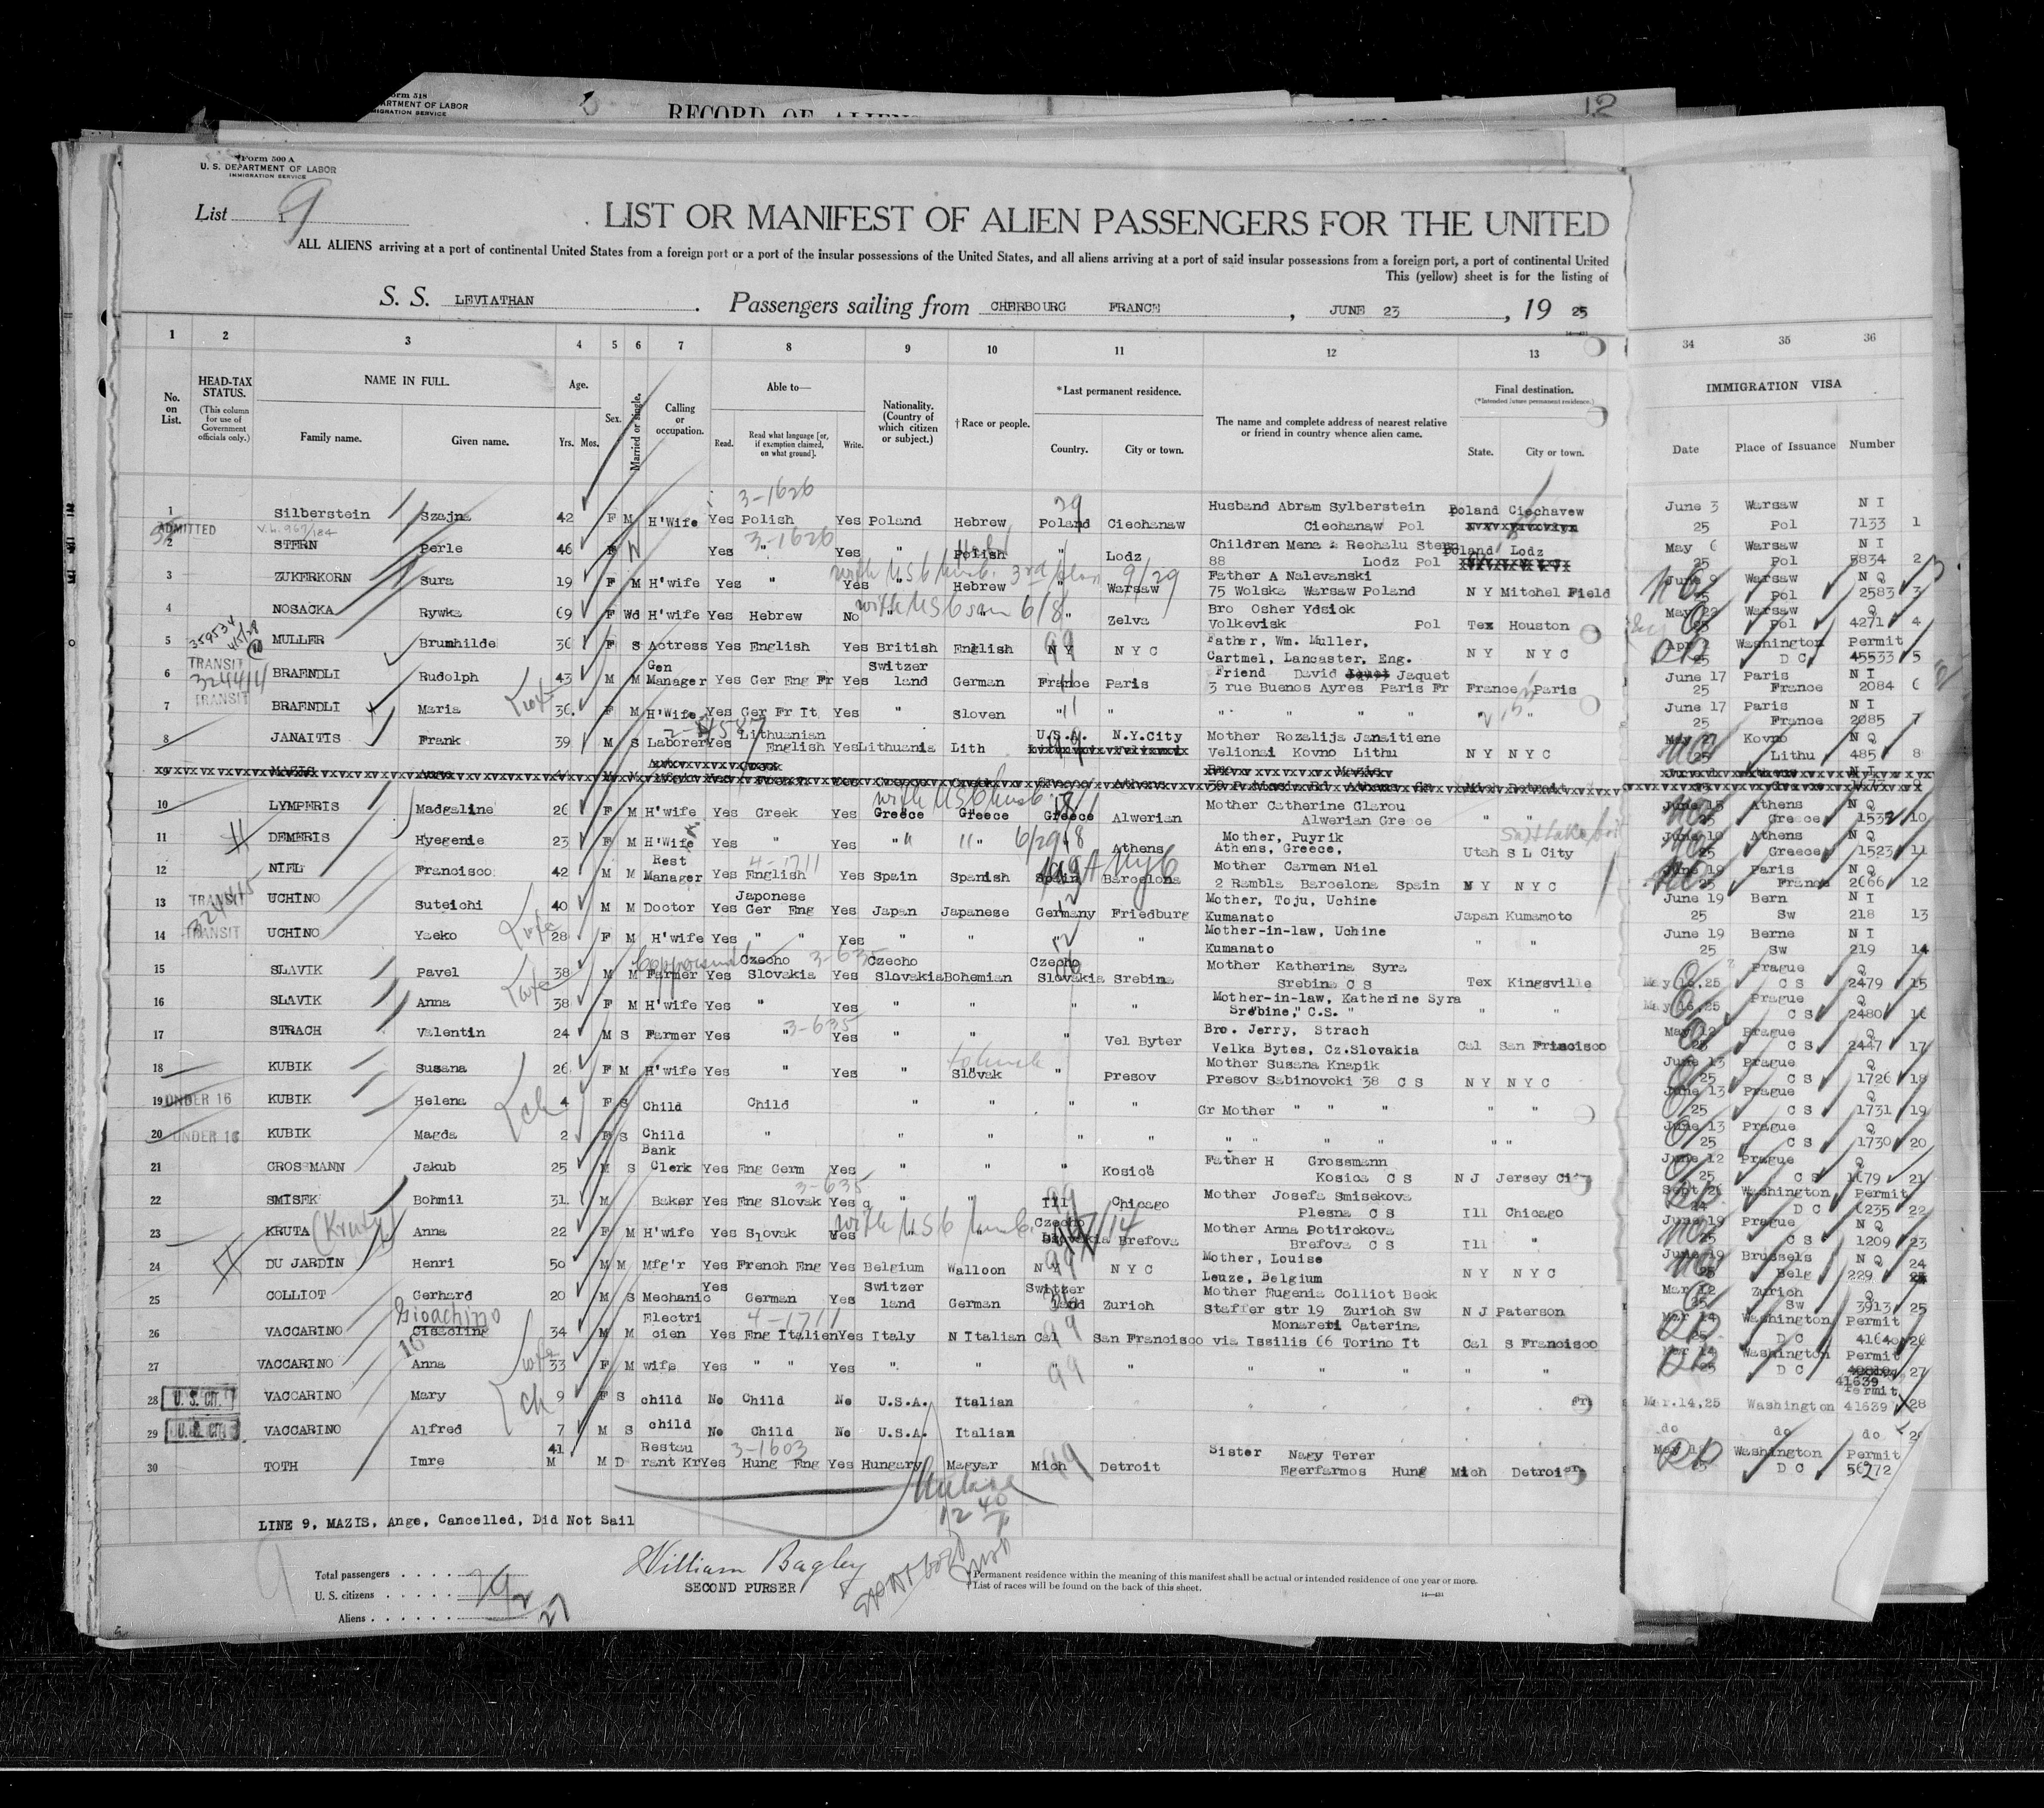 Form 518
DEPARTMENT OF LABOR
IMMIGRATION SERVICE
RECORD OF ALIENS
12
Form 500 A
U. S. DEPARTMENT OF LABOR
IMMIGRATION SERVICE
List 9
LIST OR MANIFEST OF ALIEN PASSENGERS FOR THE UNITED
ALL ALIENS arriving at a port of continental United States from a foreign port or a port of the insular possessions of the United States, and all aliens arriving at a port of said insular possessions from a foreign port, a port of continental United
This (yellow) sheet is for the listing of
S. S. LEVIATHAN Passengers sailing from CHERBOURG FRANCE, JUNE 23, 1925
1 2 3 4 5 6 7 8 9 10 11 12 13 34 35 36
No. on List. HEAD-TAX STATUS. (This column for use of Government officials only.) NAME IN FULL. Family name. Given name. Age. Yrs. Mos. Sex. Married or single. Calling or occupation. Able to— Read. Read what language [or, if exemption claimed, on what ground]. Write. Nationality. (Country of which citizen or subject.) †Race or people. *Last permanent residence. Country. City or town. The name and complete address of nearest relative or friend in country whence alien came. Final destination. (*Intended future permanent residence.) State. City or town. IMMIGRATION VISA Date Place of Issuance Number
3-1626 29
1 ADMITTED Silberstein Szajna 42 F M H'Wife Yes Polish Yes Poland Hebrew Poland Ciechanaw Husband Abram Sylberstein Ciechanaw Pol Poland Ciechavew June 3 25 Warsaw Pol N I 7133 1
3-1626
2 STERN Perle 46 F Yes " Yes " Polish " Lodz Children Mena & Rechalu Stern 88 Lodz Pol Poland Lodz May 6 25 Warsaw Pol N I 5834 2
with USC husb. 9/29
3 ZUKERKORN Sura 19 F M H'wife Yes " Yes " Hebrew " Warsaw Father A Nalevanski 75 Wolska Warsaw Poland N Y Mitchel Field June 9 25 Warsaw Pol N Q 2583 3
with USC son 6/8
4 NOSACKA Rywka 69 F Wd H'wife Yes Hebrew No " " " Zelva Bro Osher Ydsiok Volkevisk Pol Tex Houston May 22 25 Warsaw Pol Q 4271 4
359534 4/5/28
5 MULLER Brunhilde 36 F S Actress Yes English Yes British English N Y N Y C Father, Wm. Muller, Cartmel, Lancaster, Eng. N Y N Y C Apr 2 25 Washington D C Permit 45533 5
6 TRANSIT 324414 BRAENDLI Rudolph 43 M M Gen Manager Yes Ger Eng Fr Yes Switzer land German France Paris Friend David Jaquet 3 rue Buenos Ayres Paris Fr France Paris June 17 25 Paris France N I 2084 6
7 TRANSIT BRAENDLI Maria 36 F M H'Wife Yes Ger Fr It Yes " Sloven " " " " " " " June 17 25 Paris France N I 2085 7
8 JANAITIS Frank 39 M S Laborer Yes Lithuanian English Yes Lithuania Lith U.S.A. N.Y.City Mother Rozalija Janaitiene Velionai Kovno Lithu N Y N Y C May 27 25 Kovno Lithu N Q 485 8
9 MAZIS Ange
with USC husb.
10 LYMPERIS Madgaline 26 F M H'wife Yes Greek Yes Greece Greece Greece Alwerian Mother Catherine Glarou Alwerian Greece " " June 15 25 Athens Greece N Q 1532 10
Salt Lake
11 DEMERIS Hyegenie 23 F M H'Wife Yes " Yes " " " Athens Mother, Puyrik Athens, Greece, Utah S L City June 10 25 Athens Greece N Q 1523 11
4-1711
12 NIEL Francisco 42 M M Rest Manager Yes English Yes Spain Spanish Spain Barcelona Mother Carmen Niel 2 Rambla Barcelona Spain N Y N Y C June 19 25 Paris France N Q 2666 12
13 TRANSIT 324415 UCHINO Suteichi 40 M M Doctor Yes Japonese Ger Eng Yes Japan Japanese Germany Friedburg Mother, Toju, Uchine Kumanato Japan Kumamoto June 19 25 Bern Sw N I 218 13
14 TRANSIT UCHINO Yaeko wife 28 F M H'wife Yes " " Yes " " " " Mother-in-law, Uchine Kumanato " " June 19 25 Berne Sw N I 219 14
3-635
15 SLAVIK Pavel 38 M M Farmer Yes Czecho Slovakia Yes Czecho Slovakia Bohemian Czecho Slovakia Srebina Mother Katherina Syra Srebina C S Tex Kingsville May 16,25 Prague C S Q 2479 15
16 SLAVIK Anna wife 38 F M H'wife Yes " Yes " " " " Mother-in-law, Katherine Syra Srebine, C.S. " " May 16,25 Prague C S Q 2480 16
3-635
17 STRACH Valentin 24 M S Farmer Yes " Yes " " " Vel Byter Bro. Jerry, Strach Velka Bytes, Cz.Slovakia Cal San Francisco May 12 25 Prague C S Q 2447 17
to husb
18 KUBIK Susana 26 F M H'wife Yes " Yes " Slovak " Presov Mother Susana Knapik Presov Sabinovoki 38 C S N Y N Y C June 13 25 Prague C S Q 1726 18
19 UNDER 16 KUBIK Helena ch 4 F S Child Child " " " " Gr Mother " " " " " June 13 25 Prague C S Q 1731 19
20 UNDER 16 KUBIK Magda 2 F S Child " " " " " " " " " " " June 13 25 Prague C S Q 1730 20
21 GROSSMANN Jakub 25 M S Bank Clerk Yes Eng Germ Yes " " " Kosice Father H Grossmann Kosica C S N J Jersey City June 12 25 Prague C S Q 1679 21
3-635
22 SMISEK Bohmil 31 M Baker Yes Eng Slovak Yes " " Ill Chicago Mother Josefa Smisekova Plesna C S Ill Chicago Sept 26 24 Washington D C Permit 6235 22
with USC husb.
23 KRUTA (Kruty) Anna 22 F M H'wife Yes Slovak Yes " " Czecho Slovakia Brefova Mother Anna Potirckova Brefova C S Ill " June 19 25 Prague C S N Q 1209 23
24 DU JARDIN Henri 50 M M Mfg'r Yes French Eng Yes Belgium Walloon N Y N Y C Mother, Louise Leuze, Belgium N Y N Y C June 19 25 Brussels Belg N Q 229 24
25 COLLIOT Gerhard 20 M S Mechanic Yes German Yes Switzer land German Switzer land Zurich Mother Eugenia Colliot Beck Staffer str 19 Zurich Sw N J Paterson Mar 12 25 Zurich Sw Q 3913 25
Gioachino 4-1711
26 VACCARINO 34 M M Electri cien Yes Eng Italien Yes Italy N Italian Cal San Francisco Monareti Caterina via Issilis 66 Torino It Cal S Francisco Mar 14 25 Washington D C Permit 41640 26
27 VACCARINO Anna wife 33 F M wife Yes " " Yes " " " " " " " " Mar 14 25 Washington D C Permit 41639 27
28 U. S. CIT. VACCARINO Mary ch 9 F S child No Child No U.S.A. Italian Mar.14,25 Washington Permit 41639 28
29 U. S. CIT. VACCARINO Alfred 7 M S child No Child No U.S.A. Italian do do do 29
3-1603
30 TOTH Imre 41 M M D Restau rant Kr Yes Hung Eng Yes Hungary Magyar Mich Detroit Sister Nagy Terer Egerfarmos Hung Mich Detroit May 25 Washington D C Permit 56272
LINE 9, MAZIS, Ange, Cancelled, Did Not Sail
Total passengers
U. S. citizens 2
Aliens 27
William Bagley
SECOND PURSER
*Permanent residence within the meaning of this manifest shall be actual or intended residence of one year or more.
†List of races will be found on the back of this sheet.